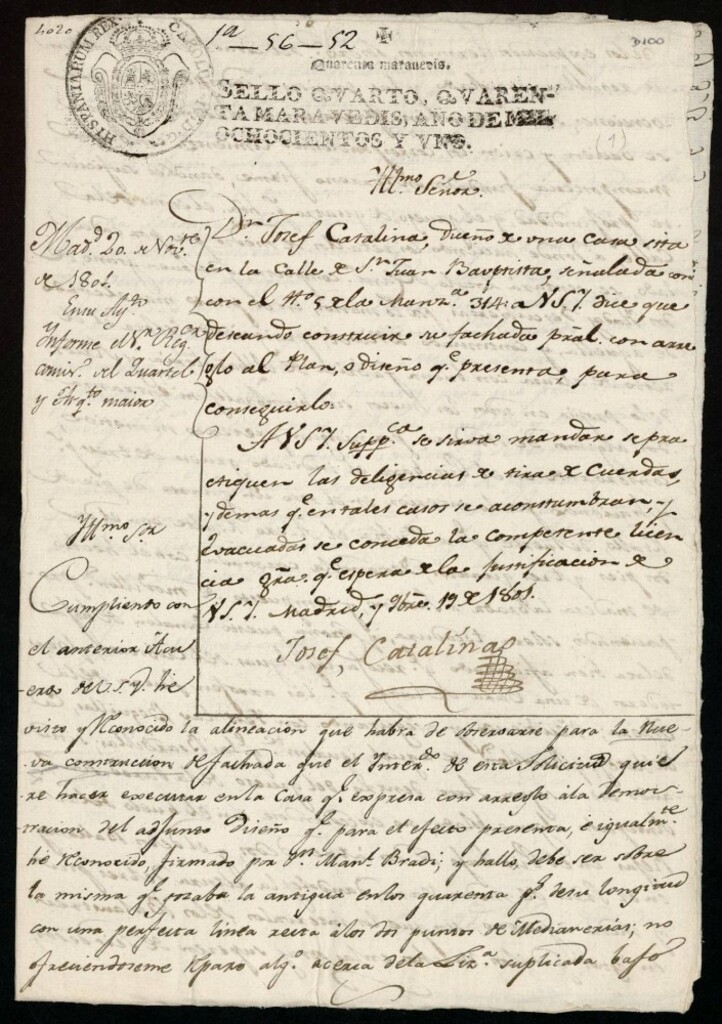 4020
1ª — 56 — 52
D100
HISPANIARUM REX
CAROLUS
Quarenta maravedis.
SELLO QVARTO, QVAREN-
TA MARAVEDIS, AÑO DE MIL
OCHOCIENTOS Y VNO.
(1)
Yllmo Señor.
Dn Josef Catalina, dueño de una casa sita
en la Calle de Sn Juan Bauptista, señalada con
con el Nº 5 de la Manzª 314: a VSY. dice que
deseando construir su fachada pral. con arre
glo al Plan, o diseño qe presenta, para
conseguirlo
A VSY. Suppca se sirva mandar se pra
ctiquen las deligencias de tira de Cuerdas,
y demas qe en tales casos se acostumbran, y
evacuadas se conceda la competente licen
cia gra. qe espera de la justificacion de
VSY. Madrid, y 9bre. 19 de 1801.
Josef Catalina
Madd 20 de Novte
de 1801.
En su Aytº
Informe el Sr Regr
comisº del Quartel
y Arqto maior
Yllmo Sr
Cumpliendo con
el anterior Acu
-erdo de V.S.Y. he
visto y Reconocido la alineacion que habra de observarse para la Nue-
-va construccion de fachada que el Interdo de esta Solicitud quie
-re hacer executar en la Casa qe expresa con arreglo ála demos-
tracion del adjunto Diseño qe para el efecto presenta, é igualmte
hé Reconocido, firmado pr Dn Manl Bradi; y hallo, debe ser sobre
la misma qe gozaba la antigua en los quarenta ps de su longitud
con una perfecta linea recta álos dos puntos de Medianerias; no
ofreciendoseme Reparo algº acerca de la Lizª suplicada bajo